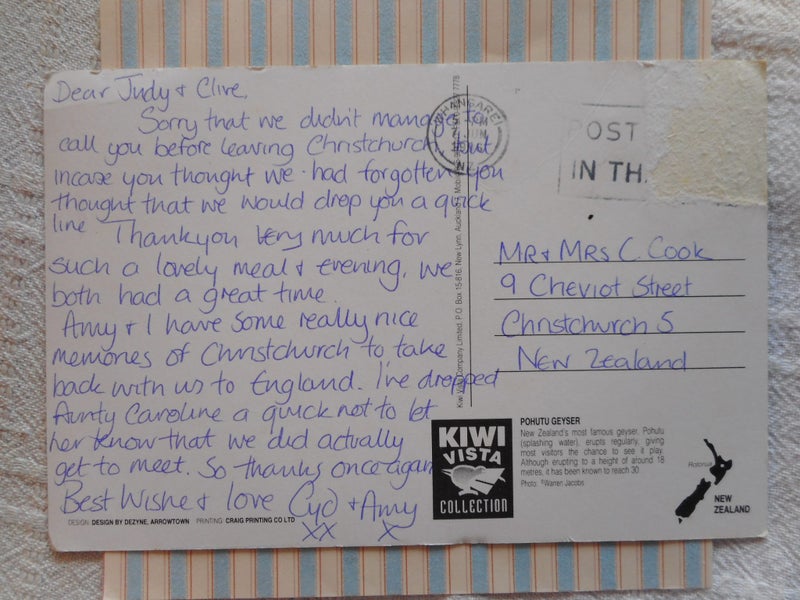 Dear Judy & Clive,
Sorry that we didn't manage to
call you before leaving Christchurch, but
incase you thought we had forgotten you
thought that we would drop you a quick
line. Thankyou very much for
such a lovely meal & evening, we
both had a great time.
Amy & I have some really nice
memories of Christchurch to take
back with us to England. I've dropped
Aunty Caroline a quick not to let
her know that we did actually
get to meet. So thanks once again
Best Wishe & love Cyd & Amy
xx x
DESIGN: DESIGN BY DEZYNE, ARROWTOWN PRINTING: CRAIG PRINTING CO LTD
WHANGAREI
NZ
POST
IN TH
Kiwi Vista Company Limited, P.O. Box 15-816, New Lynn, Auckland
MR & MRS C. COOK
9 Cheviot Street
Christchurch 5
NEW Zealand
KIWI
VISTA
COLLECTION
POHUTU GEYSER
New Zealand's most famous geyser, Pohutu
(splashing water), erupts regularly, giving
most visitors the chance to see it play.
Although erupting to a height of around 18
metres, it has been known to reach 30
Photo: ©Warren Jacobs
Rotorua
NEW
ZEALAND